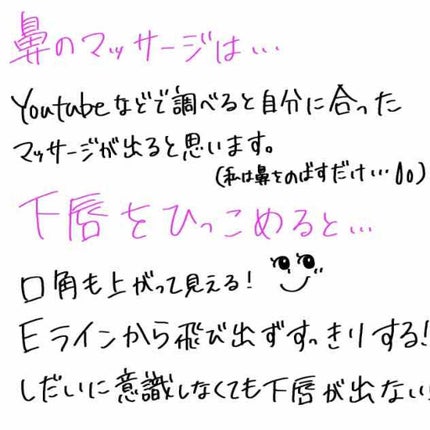 鼻のマッサージは…
Youtubeなどで調べると自分に合った
マッサージが出ると思います。
(私は鼻をのばすだけ…)
下唇をひっこめると…
口角も上がって見える!
Eラインから飛び出ずすっきりする!
しだいに意識しなくても下唇が出ない!